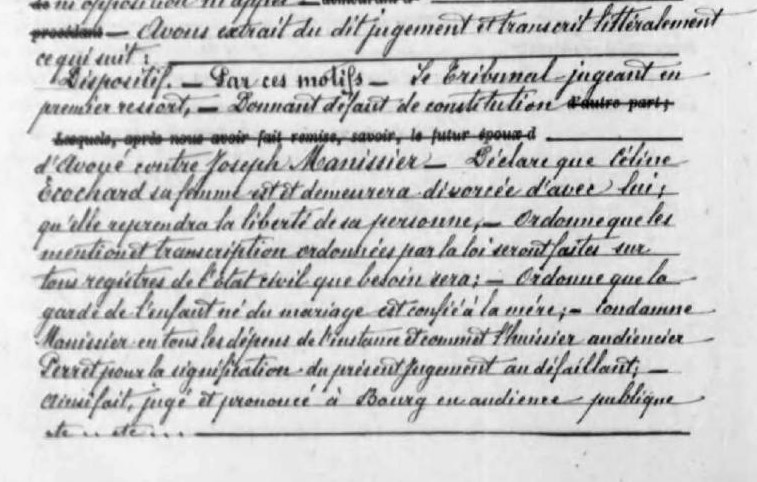 de ni opposition ni appel — demeurant à
procédant — Avons extrait du dit jugement et transcrit littéralement
ce qui suit :
Dispositif. — Par ces motifs — Le Tribunal jugeant en
premier ressort, — Donnant défaut de constitution d'autre part ;
Lesquels, après nous avoir fait remise, savoir, le futur époux d
d'Avoué contre Joseph Manissier — Déclare que Céline
Ecochard sa femme est et demeurera divorcée d'avec lui ;
qu'elle reprendra la liberté de sa personne, — Ordonne que les
mention et transcription ordonnées par la loi seront faites sur
tous registres de l'état civil que besoin sera ; — Ordonne que la
garde de l'enfant né du mariage est confiée à la mère ; — Condamne
Manissier en tous les dépens de l'instance et commet l'huissier audiencier
Perret pour la signification du présent jugement au défaillant ; —
Ainsi fait, jugé et prononcé à Bourg en audience publique
etc .. etc ...